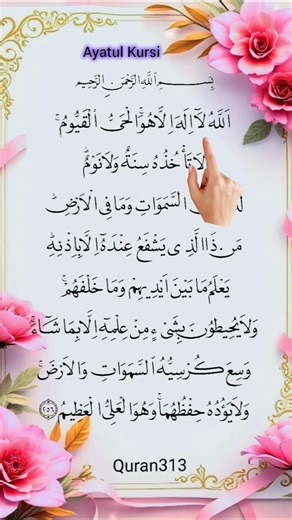 Ayatul Kursi
بِسْمِ اللَّهِ الرَّحْمَنِ الرَّحِيمِ
اَللّٰهُ لَآ اِلٰهَ اِلَّا هُوَۚ اَلْحَىُّ الْقَيُّومُۚ
لَا تَأْخُذُهُ سِنَةٌ وَلَا نَوْمٌۜ
السَّمٰوَاتِ وَمَا فِى الْاَرْضِۜ
مَنْ ذَا الَّذِى يَشْفَعُ عِنْدَهُٓ اِلَّا بِاِذْنِهِۜ
يَعْلَمُ مَا بَيْنَ اَيْدِيهِمْ وَمَا خَلْفَهُمْۚ
وَلَا يُحِيطُونَ بِشَىْءٍ مِنْ عِلْمِهِٓ اِلَّا بِمَا شَآءَۚ
وَسِعَ كُرْسِيُّهُ السَّمٰوَاتِ وَالْاَرْضَۚ
وَلَا يَؤُدُهُ حِفْظُهُمَاۚ وَهُوَ الْعَلِىُّ الْعَظِيمُ ﴿٢٥٥﴾
Quran313